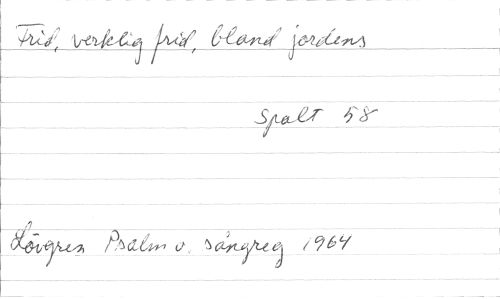 Frid, verklig frid, bland jordens
Spalt 58
Lövgren Psalm o. sångreg 1964